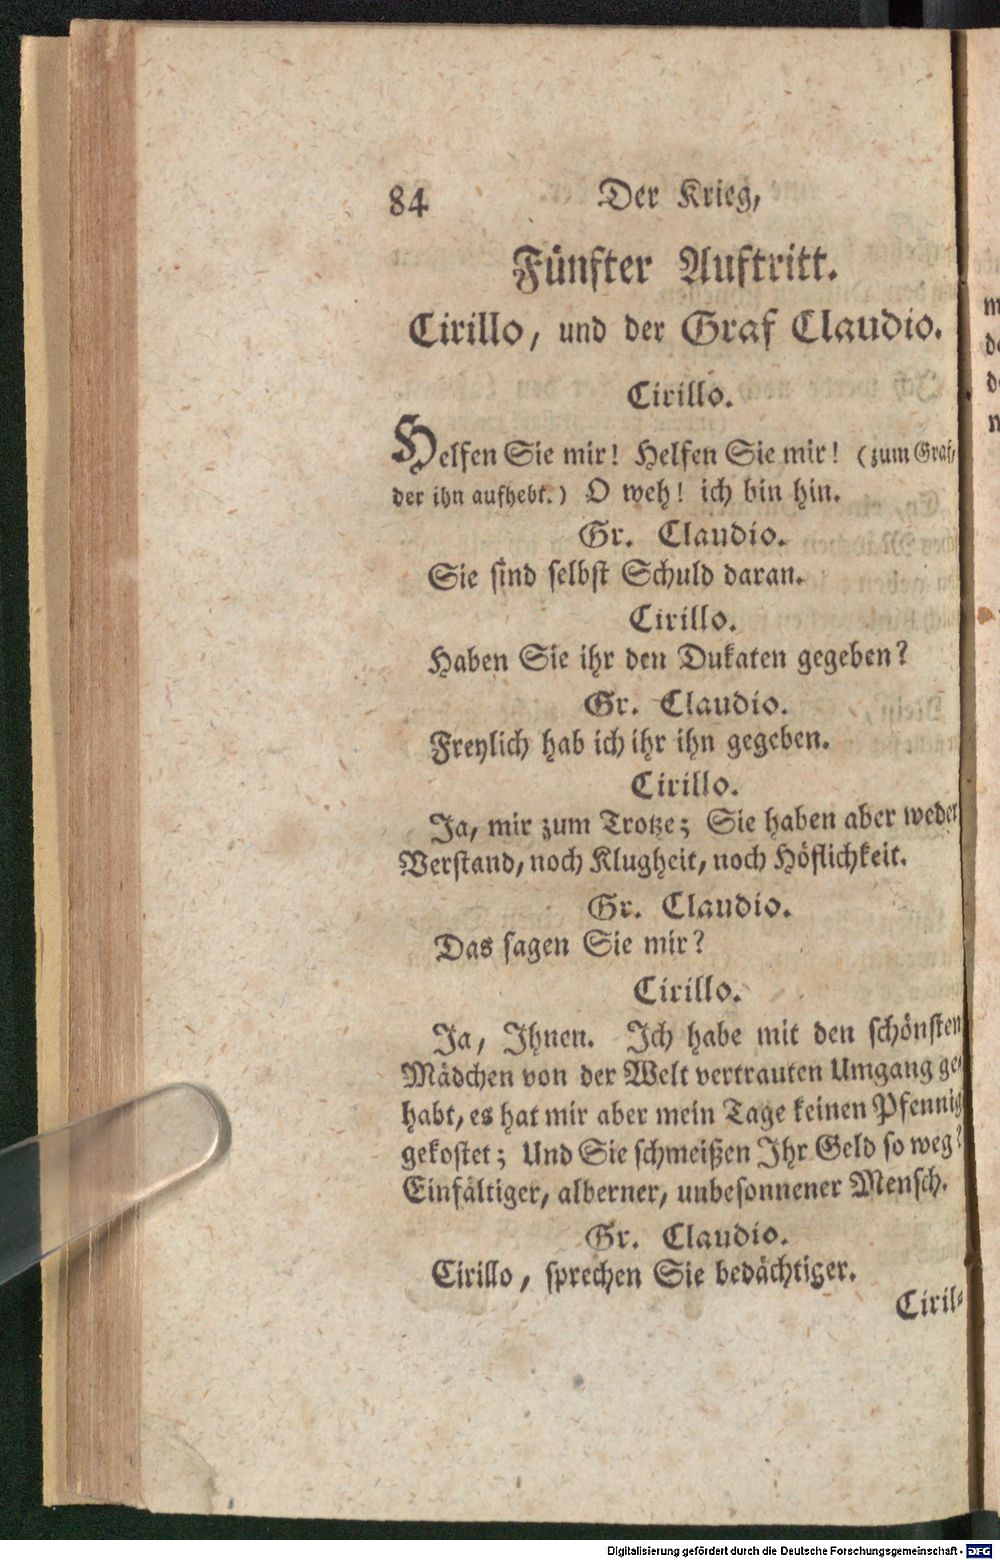 84 Der Krieg,
Fünfter Auftritt.
Cirillo, und der Graf Claudio.
Cirillo.
Helfen Sie mir! Helfen Sie mir! (zum Graf,
der ihn aufhebt.) O weh! ich bin hin.
Gr. Claudio.
Sie sind selbst Schuld daran.
Cirillo.
Haben Sie ihr den Dukaten gegeben?
Gr. Claudio.
Freylich hab ich ihr ihn gegeben.
Cirillo.
Ja, mir zum Trotze; Sie haben aber weder
Verstand, noch Klugheit, noch Höflichkeit.
Gr. Claudio.
Das sagen Sie mir?
Cirillo.
Ja, Ihnen. Ich habe mit den schönsten
Mädchen von der Welt vertrauten Umgang ge-
habt, es hat mir aber mein Tage keinen Pfennig
gekostet; Und Sie schmeißen Ihr Geld so weg?
Einfältiger, alberner, unbesonnener Mensch.
Gr. Claudio.
Cirillo, sprechen Sie bedächtiger.
Ciril-
Digitalisierung gefördert durch die Deutsche Forschungsgemeinschaft - DFG